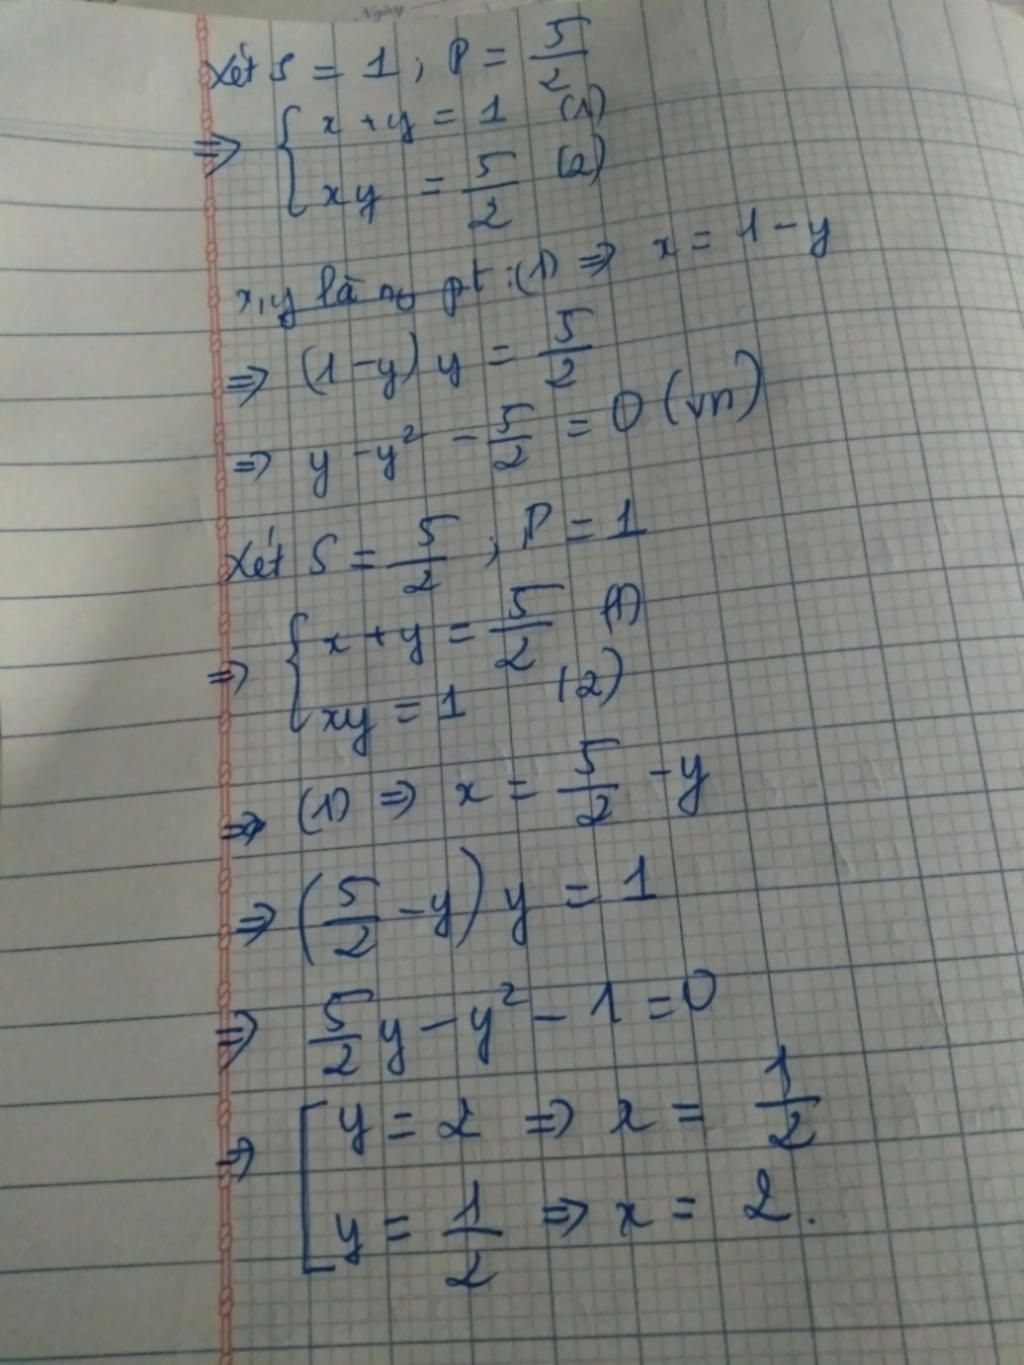 Ngày
Xét S = 1 ; P = 5/2
=> { x + y = 1 (1)
xy = 5/2 (2)
x, y là no pt : (1) => x = 1 - y
=> (1 - y) y = 5/2
=> y - y² - 5/2 = 0 (vn)
Xét S = 5/2 ; P = 1
=> { x + y = 5/2 (1)
xy = 1 (2)
=> (1) => x = 5/2 - y
=> (5/2 - y) y = 1
=> 5/2 y - y² - 1 = 0
=> [ y = 2 => x = 1/2
y = 1/2 => x = 2.